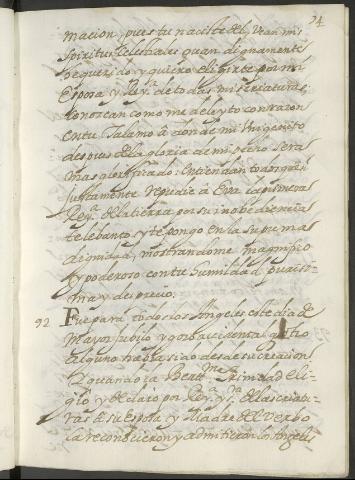 24
macion, pues tu naciste del, Vean mis
spiritus Celestiales quan dignamente
he querido y quiero elegirte por mi
Esposa y Rey.ª de todas mis criaturas;
conozcan como me deleyto con razon
en tu Talamo à donde mi Unigenito
despues de la gloria de mi pecho sera
mas glorificado: Entiendan todos que si
justamente repudie à Eva la primera
Rey.ª de la tierra por su inobediencia
te lebanto, y te pongo en la suprema
dignidad, mostrandome magnifico
y poderoso con tu humildad purisi-
ma y desprecio.
92 Fue para todos los Angeles este dia de
mayor jubilo y gozo accidental que otro
alguno habia sido desde su creacion
Y quando la Beat.ma Trinidad eli-
gio, y declaro por Rey.ª y S.ª de las criatu-
ras à su Esposa, y Madre del Verbo
la reconocieron y admitieron los Angeles